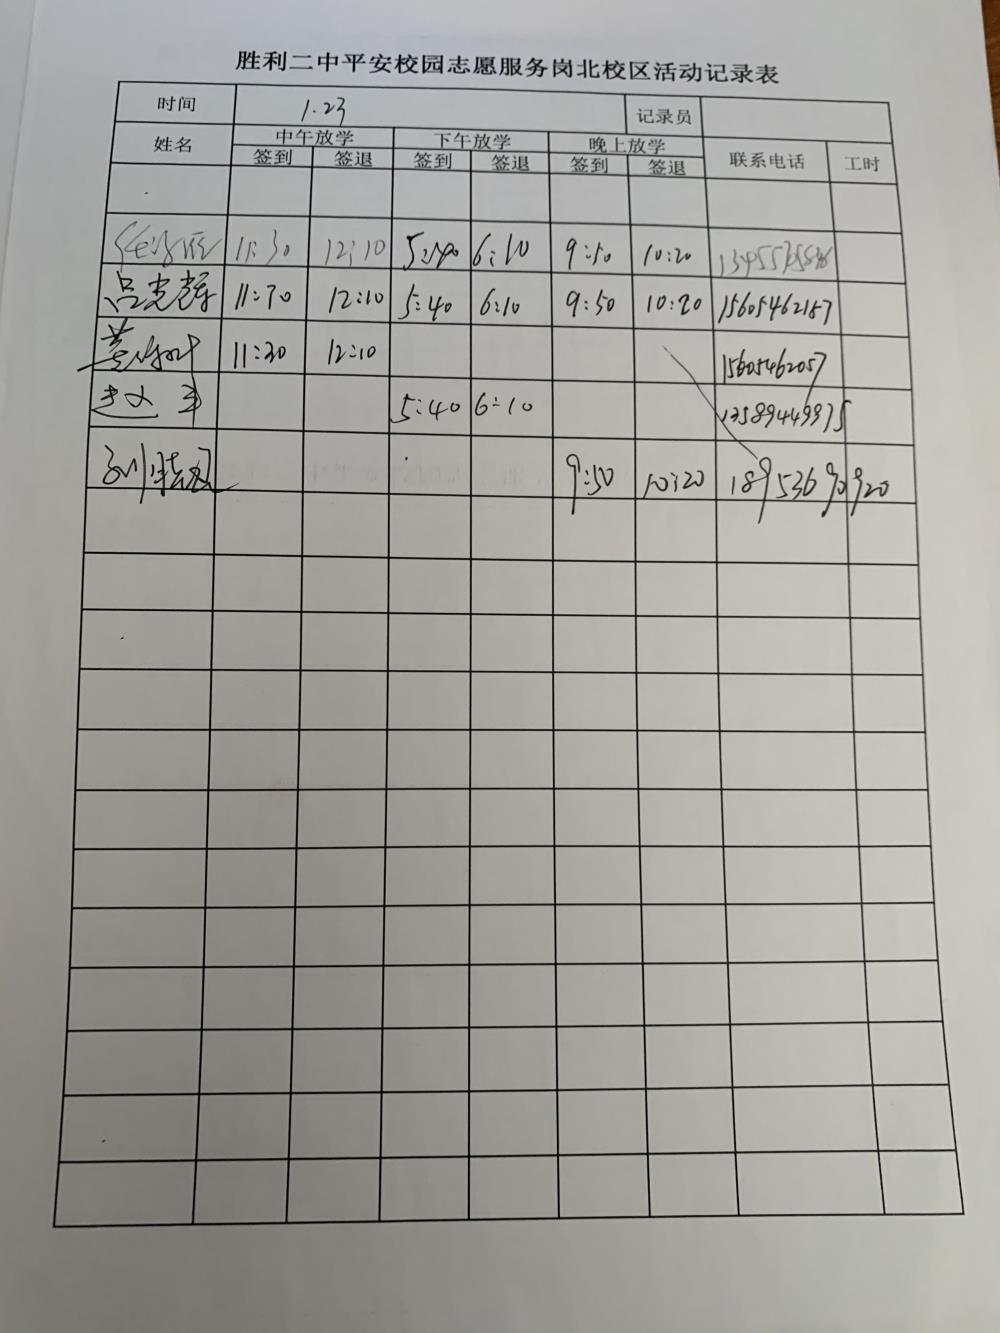 胜利二中平安校园志愿服务岗北校区活动记录表
时间 1.23 记录员
姓名 中午放学 下午放学 晚上放学 联系电话 工时
签到 签退 签到 签退 签到 签退
11:30 12:10 5:40 6:10 9:50 10:20
吕光辉 11:30 12:10 5:40 6:10 9:50 10:20 15605462187
11:30 12:10 15605462057
赵文 5:40 6:10 13589449975
刘 9:50 10:20 18953690920